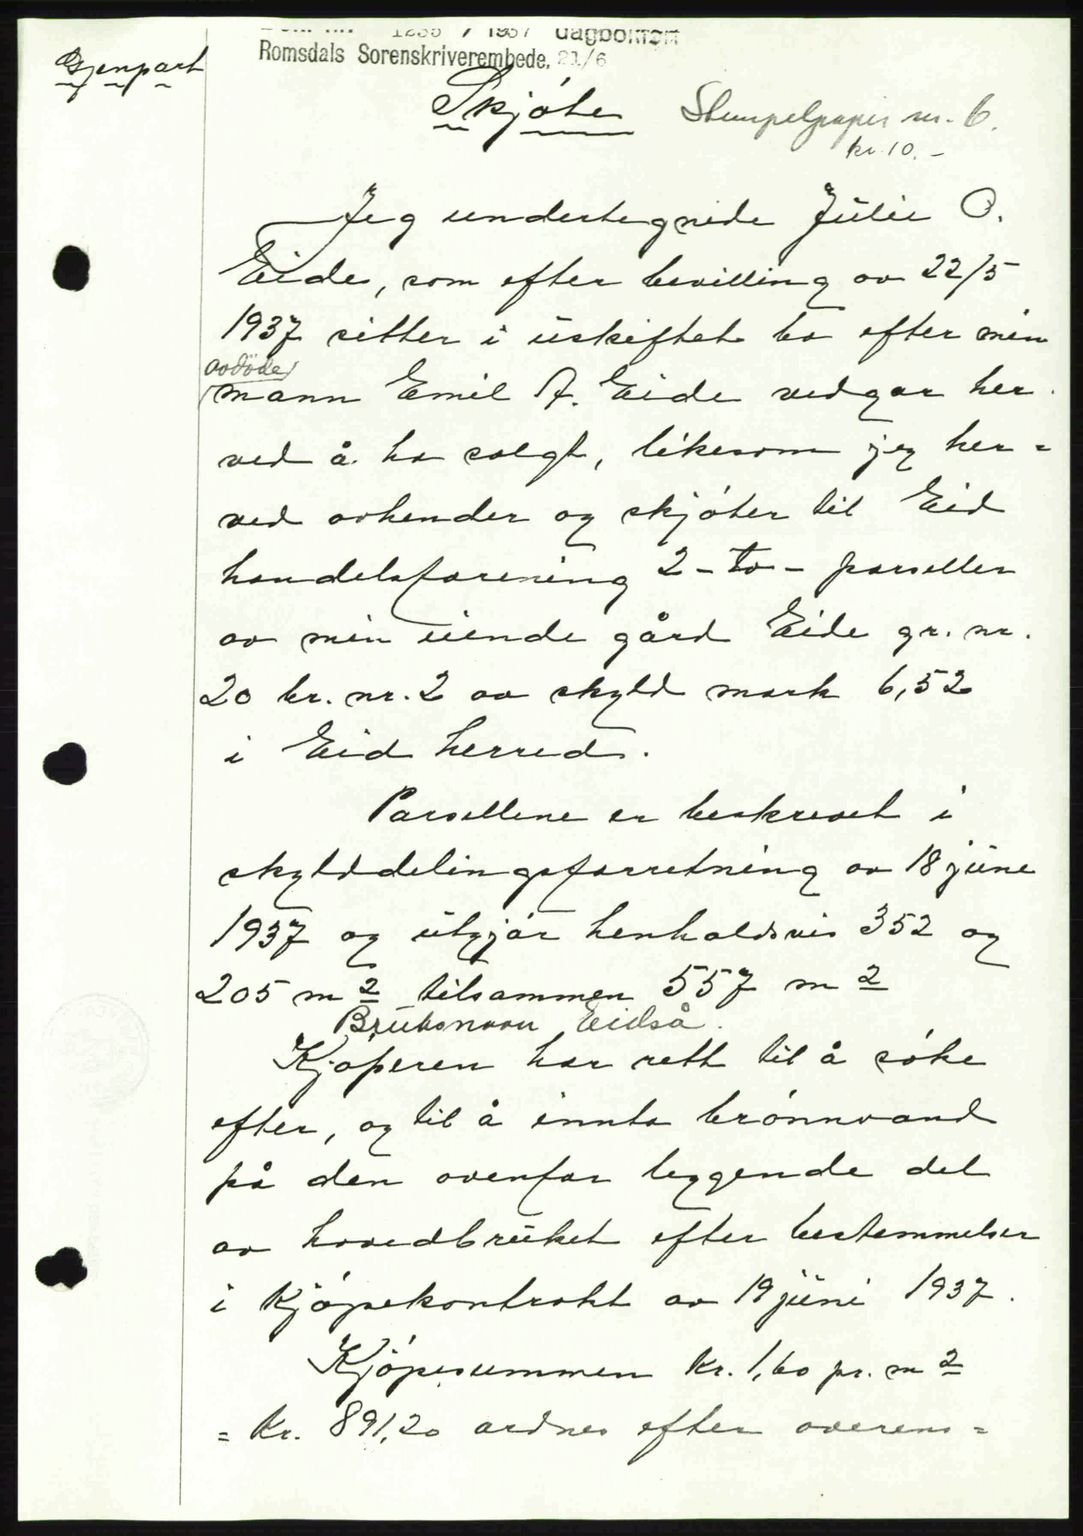 1937 dagboken
Romsdals Sorenskriverembede, 21/6
Gjenpart
Skjøte
Stempelpapir nr. 6.
kr. 10.-
Jeg undertegnede Julie O.
Eide, som efter bevilling av 22/5
1937 sitter i uskiftet bo efter min
avdöde
mann Emil A. Eide vedgar her
ved å ha solgt, likesom jeg her =
ved avhender og skjøter til Eid
handelsforening 2 - to - parseller
av min eiende gård Eide gr. nr.
20 br. nr. 2 av skyld mark 6,52
i Eid herred.
Parsellene er beskrevet i
skylddelingsforretning av 18 june
1937 og utgjør henholdsvis 352 og
205 m 2 tilsammen 557 m 2
Bruksnavn Eidså.
Kjøperen har rett til å søke
efter, og til å innta brønnvand
på den ovenfor leggende del
av hovedbruket efter bestemmelser
i Kjøpekontrakt av 19 juni 1937.
Kjøpesummen kr. 1,60 pr. m 2
= kr. 891,20 ordnes efter overens =